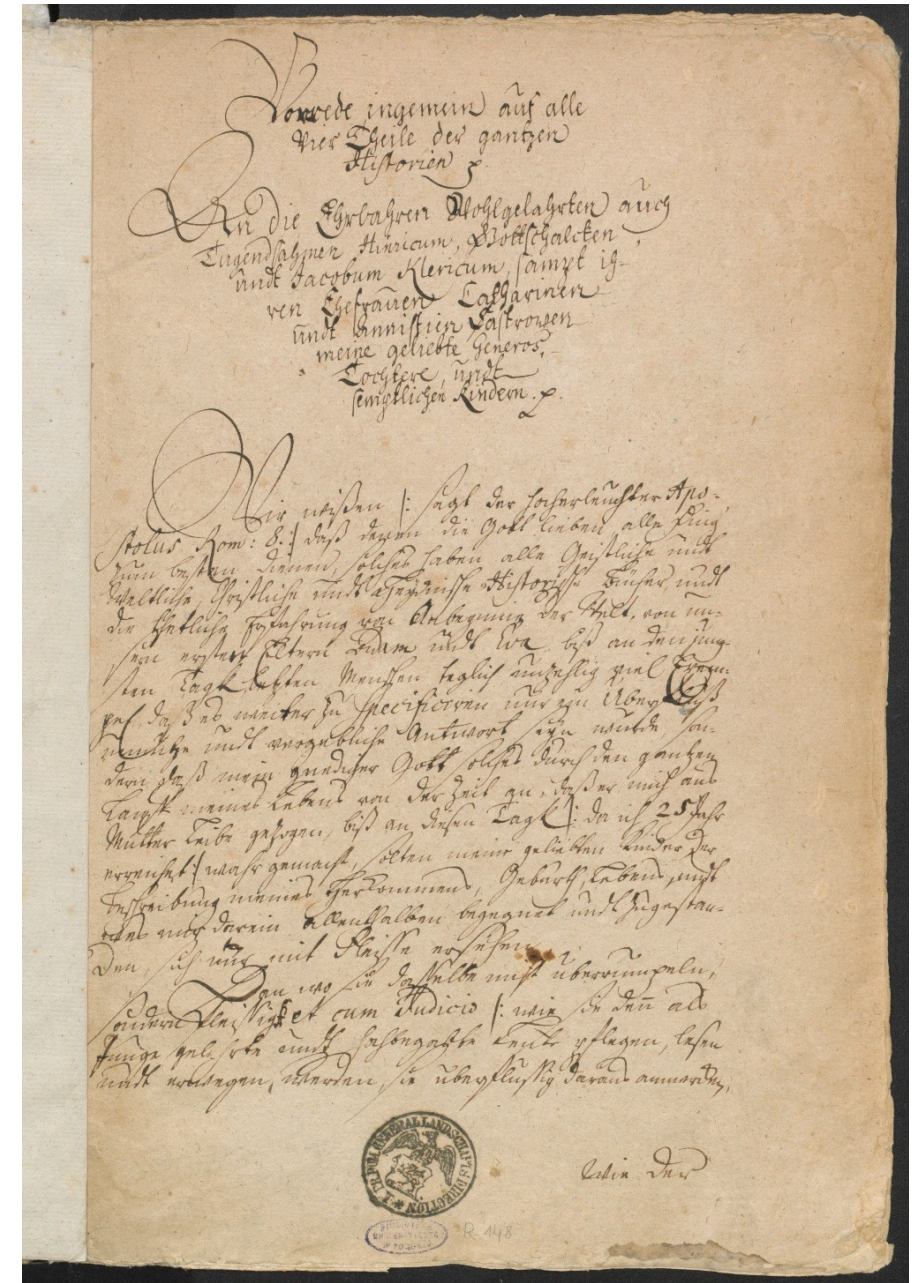 Vorrede ingemein auf alle
Vier Theile der gantzen
Historien p.
An die Ehrbahren Wohlgelahrten auch
Tugendsahmen Hinricum, Gottschalcken
undt Jacobum Klericum, sampt ih-
ren Ehefrauen Catharinen
undt Amnistien Sastrowen
meine geliebte Generos,
Tochtere, undt
semptlichen Kindern. p.
Wir wißen |: sagt der hocherleuchter Apo-
stolus Rom: 8. :| daß denen die Gott lieben alle Ding
zum besten dienen, solches haben alle Geistliche undt
Weltliche, Christliche undt Heydnische Historische Bücher, undt
die Ehetliche Erfahrung von Anbeginn der Welt, von un-
sern ersten Eltern Adam undt Eva biß an den jung-
sten Tagk letzten Menschen teglich unzehlig viel Exem-
pel, daß es weiter zu specificiren nur ein Uberfluß
unnutze undt vergebliche Antwort seyn wurde, son-
dern daß mein gnediger Gott solches durch den gantzen
Lauff meines Lebens von der Zeit an, daß er mich aus
Mutter Leibe gezogen, biß an diesen Tagk |: da ich 25 Jahr
erreichet :| wahr gemacht, solten meine geliebten Kinder der
Beschreibung meines Herkommens, Geburth, Lebens, undt
was mir darein allenthalben begegnet undt zugestan-
den, sich nur mit Fleisse ersehen.
Dan wo sie dasselbe nicht uberrumpeln,
sondern fleissigk et cum Judicio |: wie sie den als
Junge gelehrte undt hochbegabte Leute pflegen, lesen
undt erwegen, werden sie uberflussig daraus anmercken,
wie der
K. PR. POM. GENERAL LANDSCHAFTS DIRECTION
BIBLIOTEKA
UNIWERSYTECKA
W TORUNIU
R 148